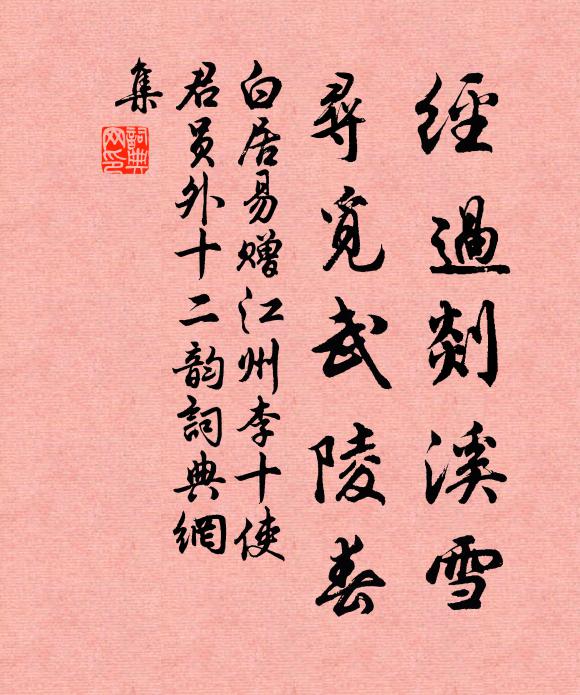 經過剡溪雪
尋覓武陵春
白居易贈江州李十使
君員外十二韵詞典網
集
詞典網印